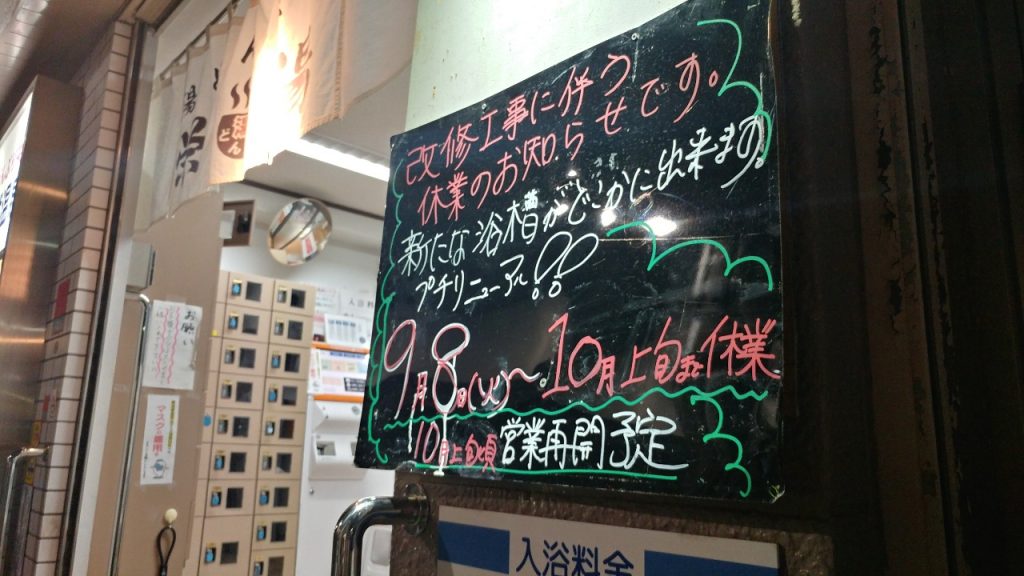 改修工事に伴う
休業のお知らせです。
新たな浴槽がどこかに出来ます。
プチリニューアル!!
9月8日(火)〜10月上旬まで休業
10月上旬頃営業再開予定
入浴料金
お願い
マスク着用
湯